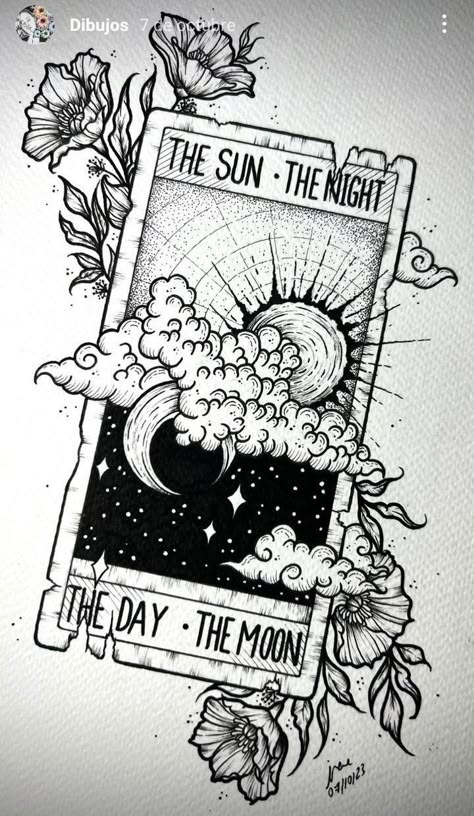 Dibujos 7 de octubre
THE SUN · THE NIGHT
THE DAY · THE MOON
Irene
07/10/23